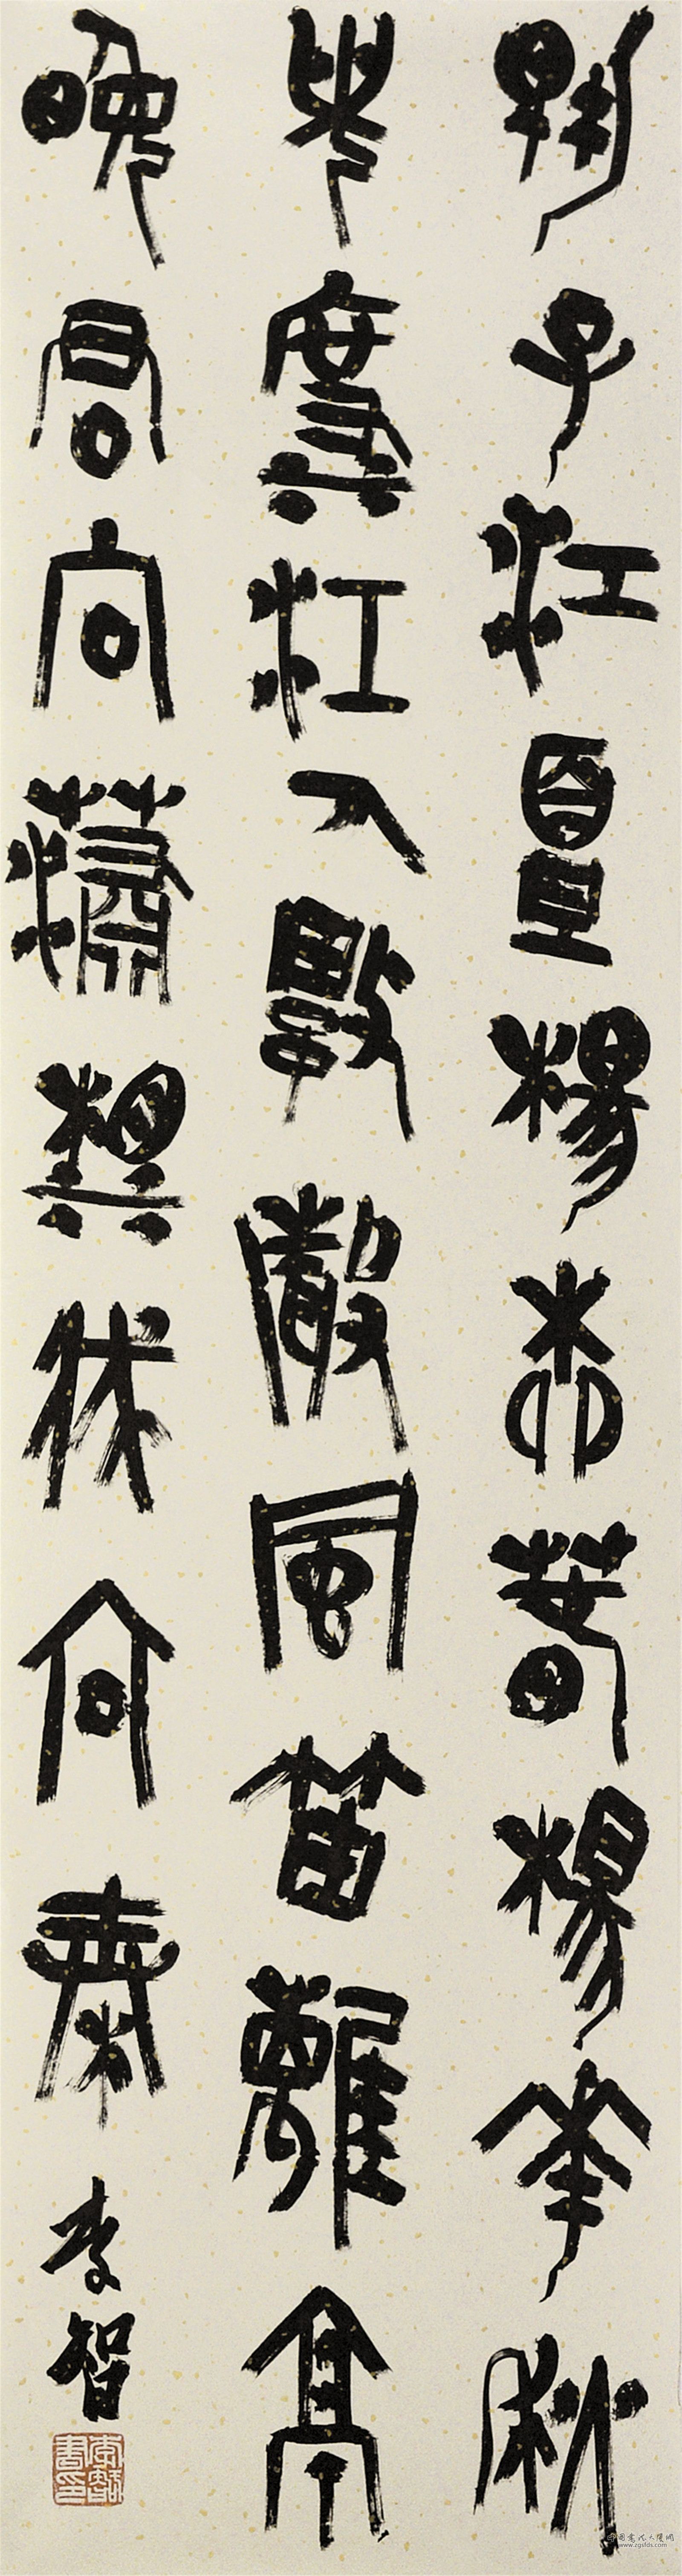 揚子江頭楊柳春楊花愁
殺渡江人數聲風笛離亭
晚君向瀟湘我向秦
李智
李智書印
www.zgsfds.com